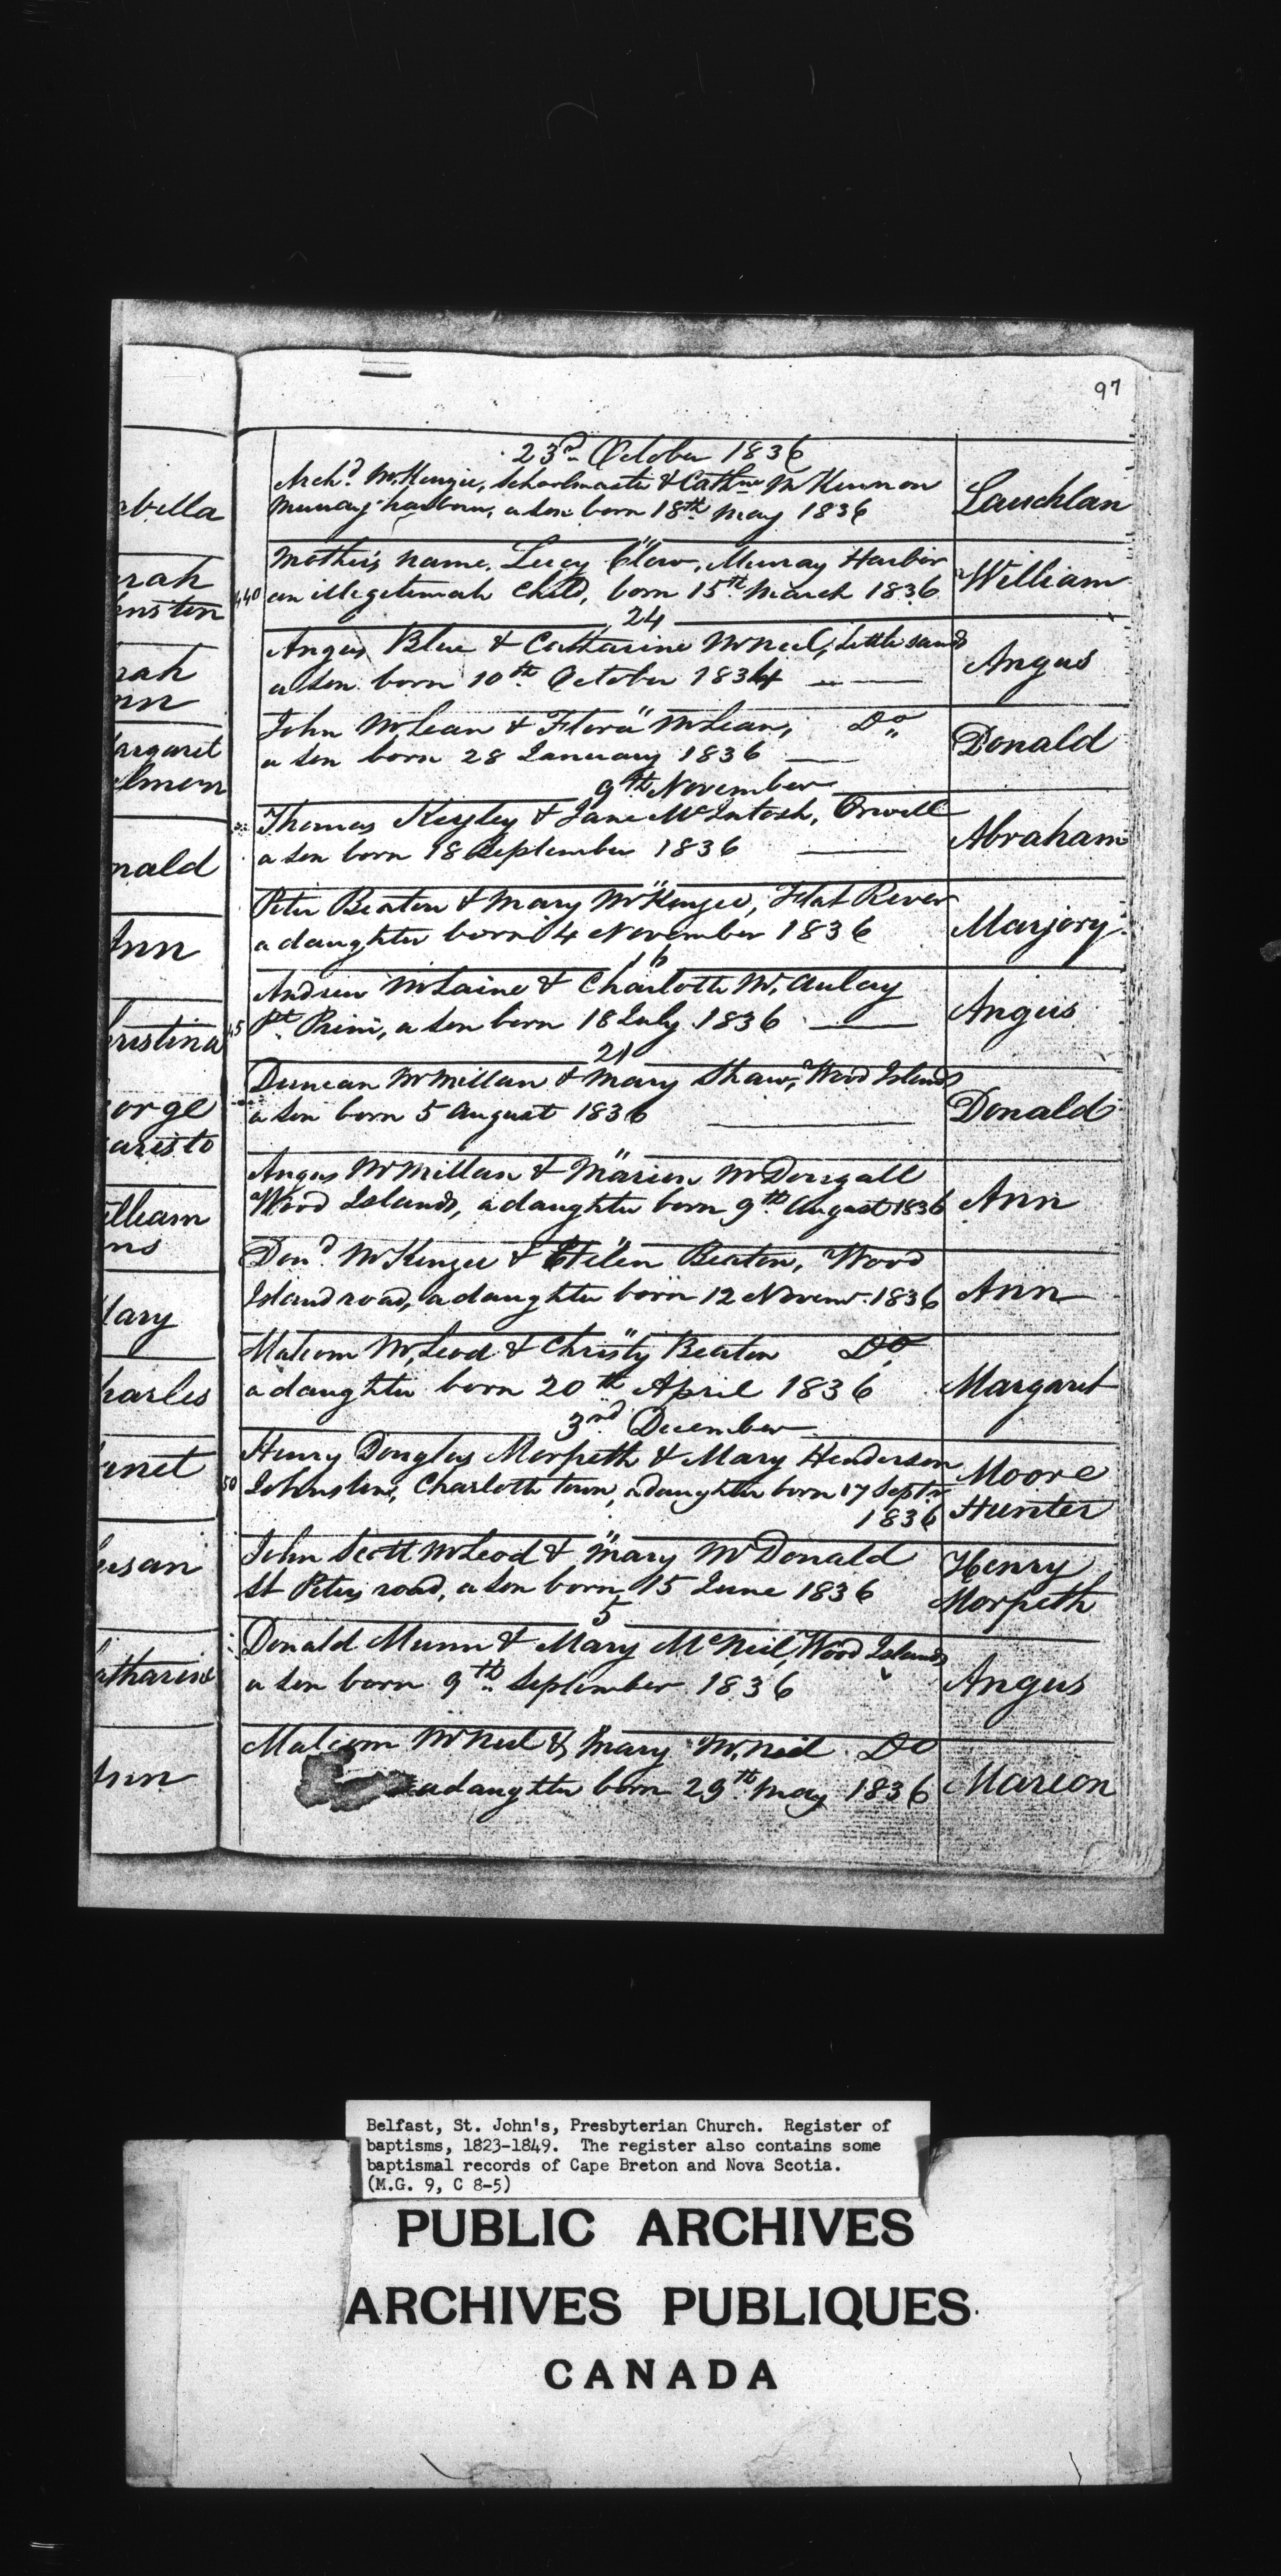 97
abella
rah
nston
rah
nn
argaret
elmon
nald
Ann
hristina
eorge
aristo
illiam
ns
Mary
harles
anet
usan
atharine
Ann
23rd October 1836
Archd McKenzie, Schoolmaster & Cathne McKinnon
Murray harbour, a son born 18th May 1836
Lauchlan
"
Mother's name, Lucy Clow, Murray Harbor
440 an illegetimate Child, born 15th March 1836
William
24
Angus Blue & Catharine McNeil, Little sands
a son born 10th October 1834
Angus
"
John McLean & Flora McLean, Do
a son born 28 January 1836
Donald
9th November
Thomas Keyley & Jane McIntosh, Orwell
a son born 18 September 1836
Abraham
"
Peter Beaton & Mary McKenzie, Flat River
a daughter born 4 November 1836
Marjory
16
Andrew McLaine & Charlotte McAulay
45 Pt Prim, a son born 18 July 1836
Angus
21
Duncan McMillan & Mary Shaw, Wood Islands
a son born 5 August 1836
Donald
"
Angus McMillan & Marion McDougall
Wood Islands, a daughter born 9th August 1836
Ann
"
Dond McKenzie & Helen Beaton, Wood
Island road, a daughter born 12 Novemr 1836
Ann
"
Malcom McLeod & Christy Beaton Do
a daughter born 20th April 1836
Margaret
3rd December
Henry Douglas Morpeth & Mary Henderson
50 Johnstone, Charlotte town, a daughter born 17 Septr
1836
Moore
Hunter
"
John Scott McLeod & Mary McDonald
St Peters road, a son born 15 June 1836
Henry
Morpeth
5
Donald Munn & Mary McNeil, Wood Islands
a son born 9th September 1836
Angus
Malcom McNeil & Mary McNeil Do
a daughter born 29th May 1836
Marion
Belfast, St. John's, Presbyterian Church. Register of
baptisms, 1823-1849. The register also contains some
baptismal records of Cape Breton and Nova Scotia.
(M.G. 9, C 8-5)
PUBLIC ARCHIVES
ARCHIVES PUBLIQUES
CANADA